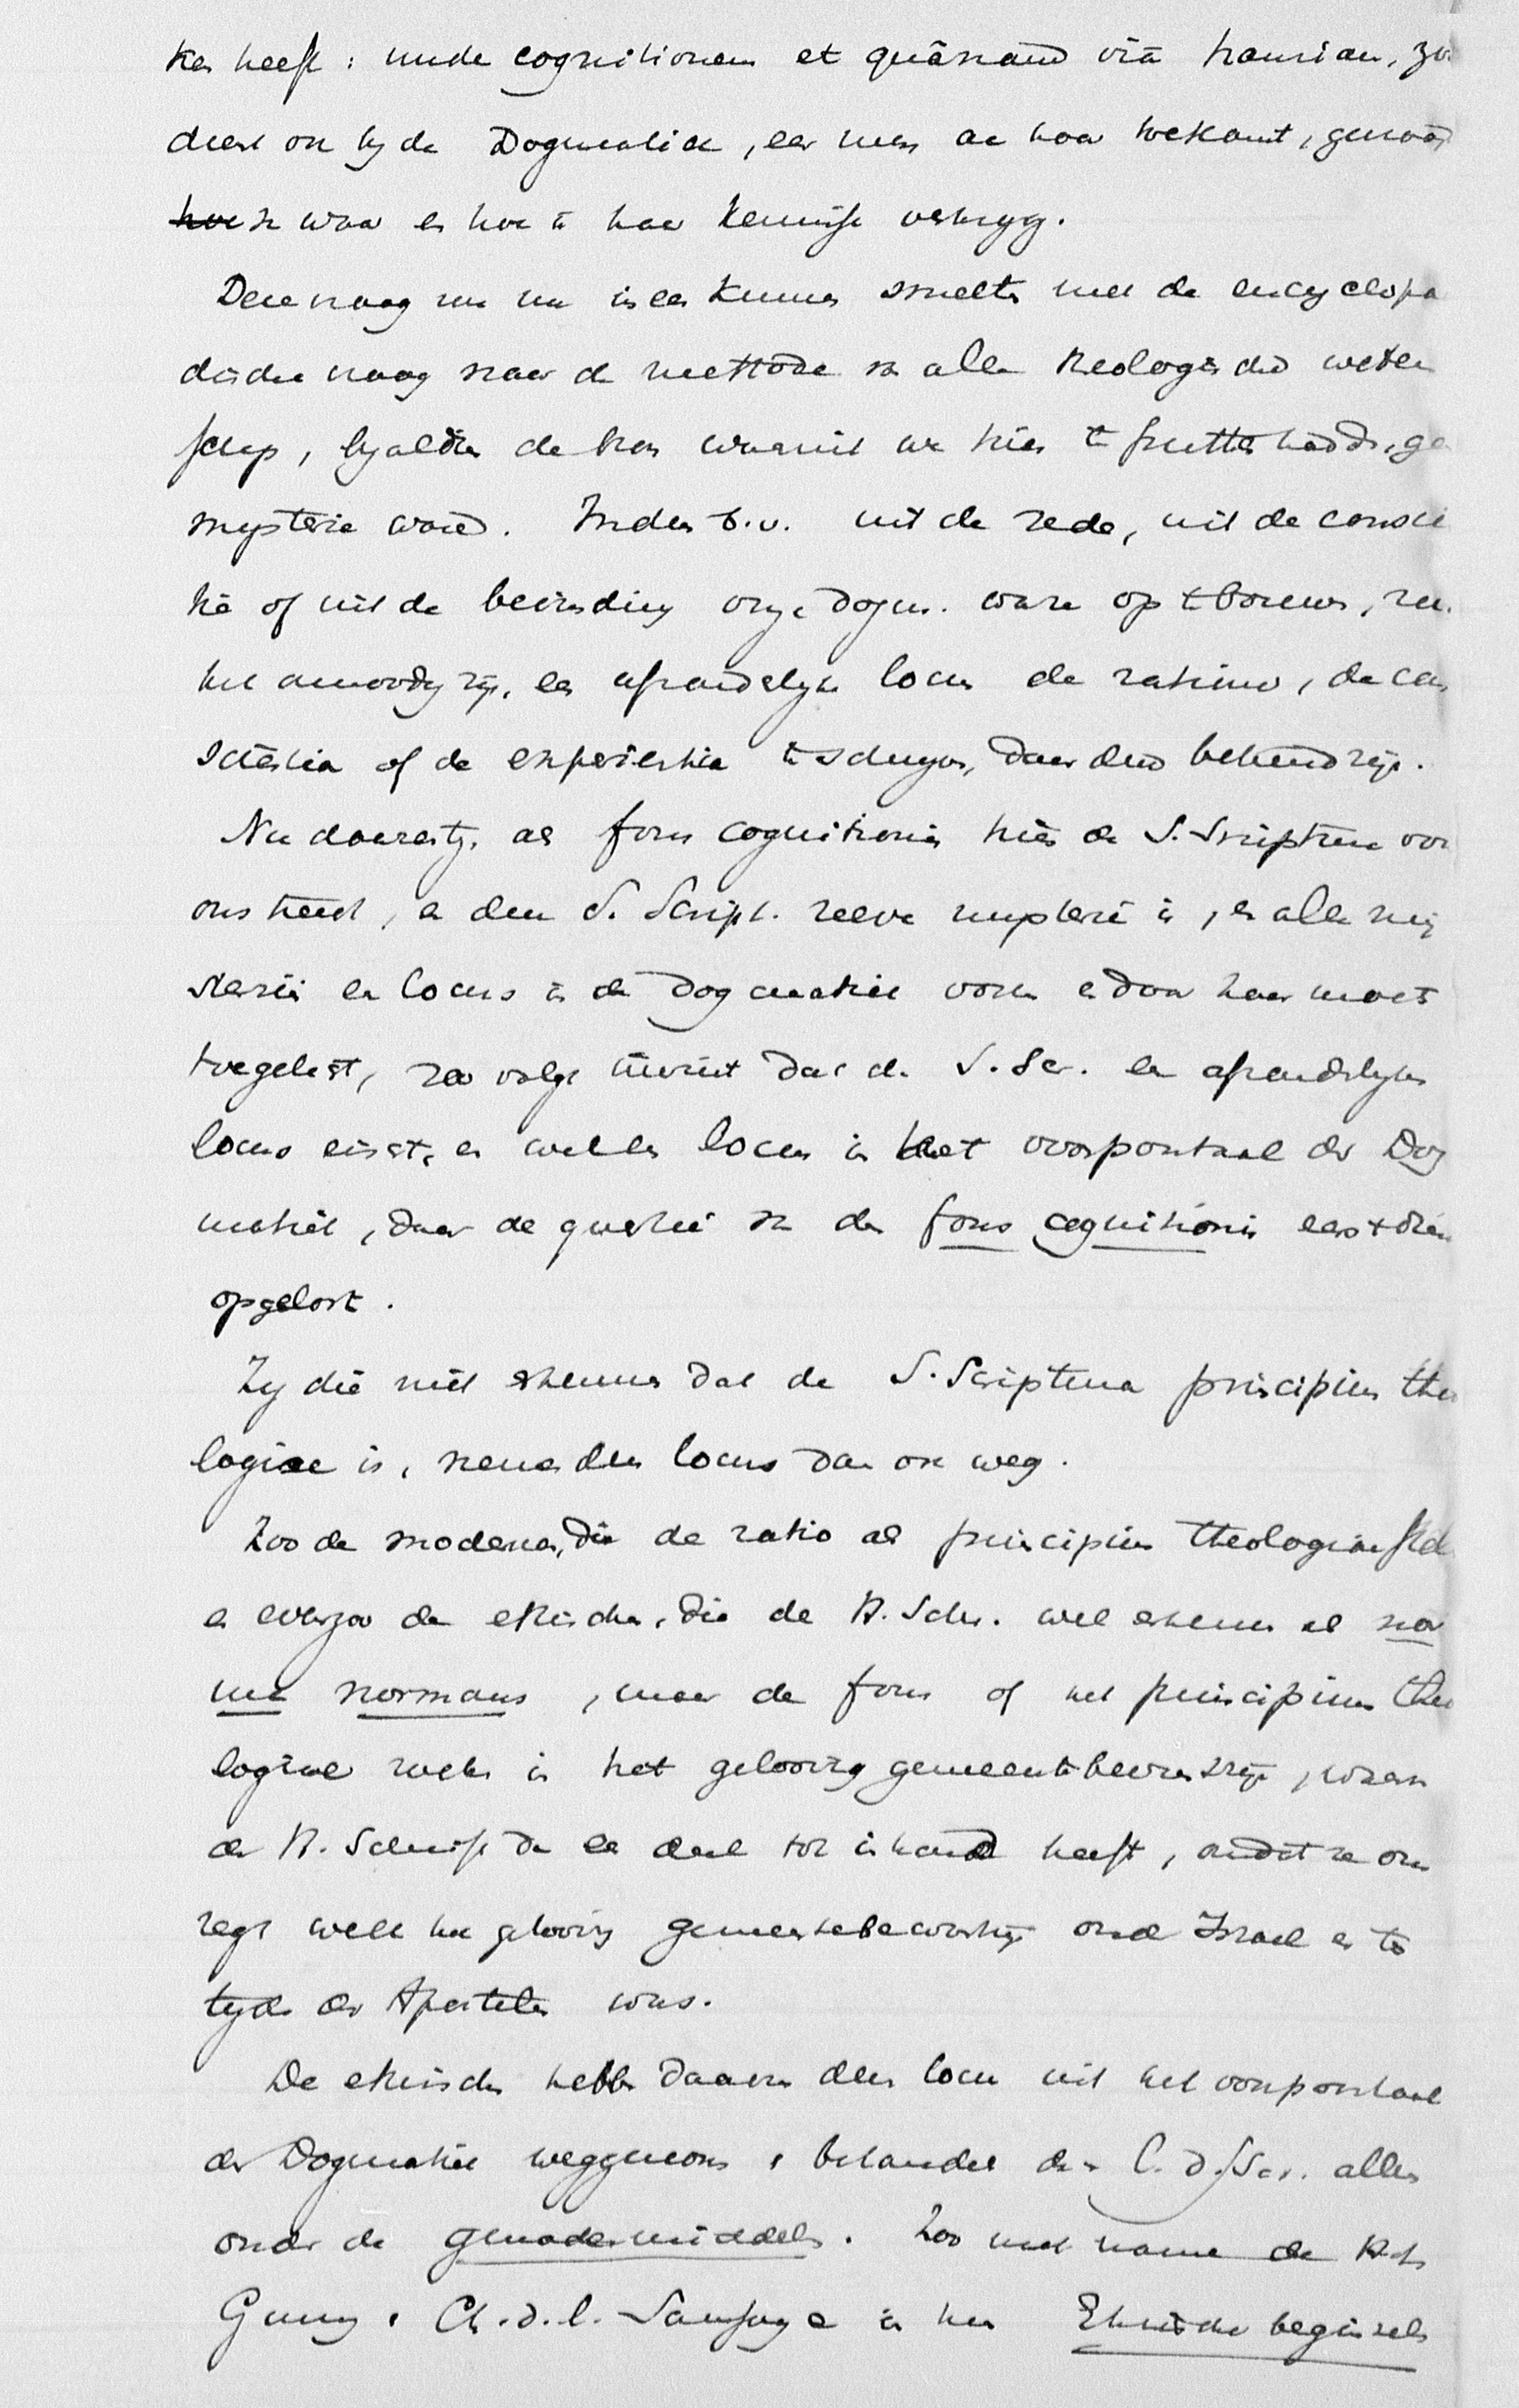 ken heeft: unde cognitionem et quânam viâ hauriam, zo
dient ook by de Dogmatiek, eer men aan haar toekomt, gevraagd
waar en hoe ik haar kennisse verkryg.
Deze vraag nu zou in een kunnen smelten met de encyclopae
dische vraag naar de methode van alle theologische weten
schap, byaldien de bron waaruit we hier te putten hadden, geen
mysterie ware. Indien b.v. uit de rede, uit de conscien
tie of uit de bevinding onze dogm. ware op te bouwen, zou
het onnoodig zijn, een afzonderlyken locus de ratione, de con
scientia of de experientia te schryven, daar deze bekend zijn.
Nu daarentegen als fons cognitionis hier de S. Scriptura voor
ons treedt, en deze S. Script. zelve mysterie is, en alle my
sterie een locus in de Dogmatiek vormt en door haar moet
toegelicht, zoo volgt hieruit dat de S. Scr. een afzonderlyken
locus eischt, en wel een locus in het voorportaal der Dog
matiek, daar de quaestie van den fons cognitionis eerst dient
opgelost.
Zy die niet erkennen dat de S. Scriptura principium theo
logiae is, nemen dien locus dan ook weg.
Zoo de modernen, die de ratio als principium theologiae stellen
en evenzoo de ethischen, die de H. Schr. wel erkennen als nor
ma normans, maar de fons of het principium theo
logiae zoeken in het geloovig gemeentebewustzijn, waarvan
de H. Schrift dan een deel tot inhoud heeft, omdat ze ons
zegt welk het geloovig gemeentebewustzijn onder Israel en ten
tyde der Apostelen was.
De ethischen hebben daarom dien locus uit het voorportaal
der Dogmatiek weggenomen en behandelen den l. d. S. Scr. alleen
onder de genademiddelen. Zoo met name de HH.
Gunning en Ch. d. l. Saussaye in hun Ethische beginselen